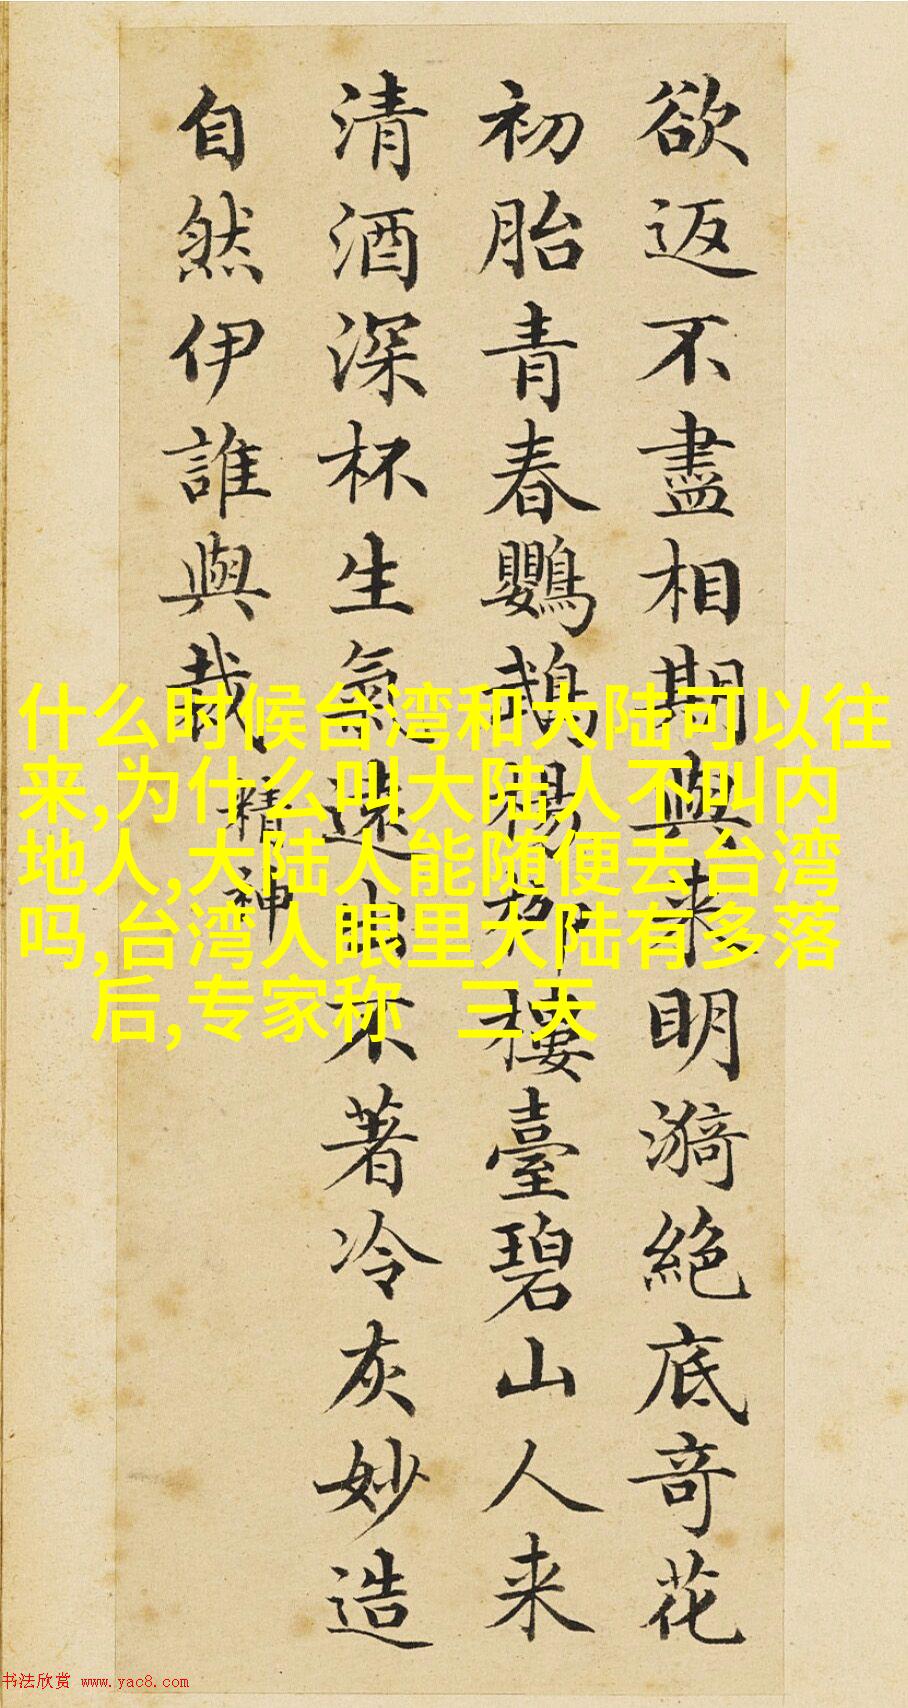 欲返不盡相期與来明漪絶底奇花
初胎青春鸚鵡楊柳樓臺碧山人来
清酒深杯生氣遠出不著冷灰妙造
自然伊誰與裁
精神
什么时候台湾和大陆可以往
来,为什么叫大陆人不叫内
地人,大陆人能随便去台湾
吗,台湾人眼里大陆有多落
后,专家称 三天
书法欣赏 www.yac8.com